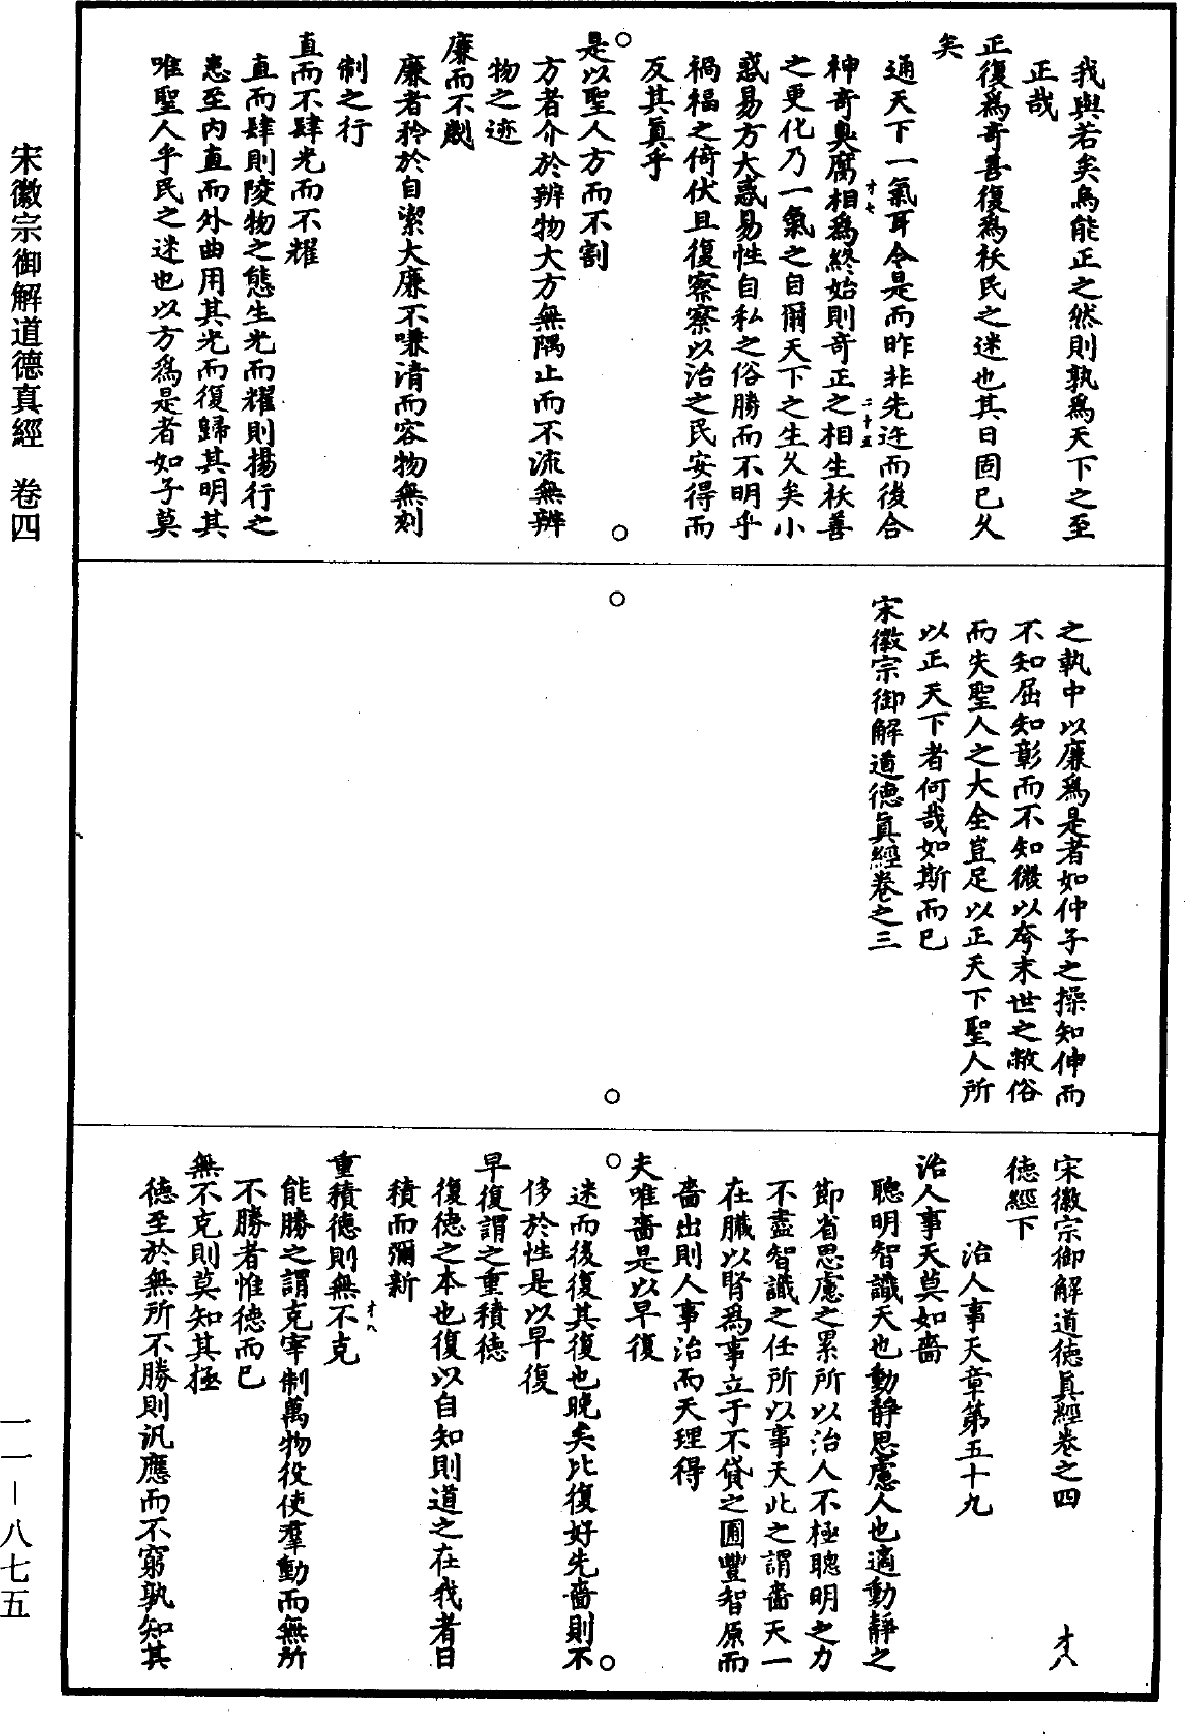 我與若矣烏能正之然則孰爲天下之至
正哉
正復爲奇善復爲祅民之迷也其日固已久
矣
通天下一氣耳今是而昨非先迕而後合
神奇臭腐相爲終始則奇正之相生祅善
之更化乃一氣之自爾天下之生久矣小
惑易方大惑易性自私之俗勝而不明乎
禍福之倚伏且復察察以治之民安得而
反其眞乎
是以聖人方而不割
方者介於辨物大方無隅止而不流無辨
物之迹
廉而不劌
廉者矜於自潔大廉不嗛清而容物無刻
制之行
直而不肆光而不耀
直而肆則陵物之態生光而耀則揚行之
患至内直而外曲用其光而復歸其明其
唯聖人乎民之迷也以方爲是者如子莫
才七
二十五
之執中以廉爲是者如仲子之操知伸而
不知屈知彰而不知微以夸末世之敝俗
而失聖人之大全豈足以正天下聖人所
以正天下者何哉如斯而已
宋徽宗御解道德眞經卷之三
宋徽宗御解道德眞經卷之四
才八
德經下
治人事天章第五十九
治人事天莫如嗇
聰明智識天也動靜思慮人也適動靜之
節省思慮之累所以治人不極聰明之力
不盡智識之任所以事天此之謂嗇天一
在臟以腎爲事立于不貸之圃豐智原而
嗇出則人事治而天理得
夫唯嗇是以早復
迷而後復其復也晚矣比復好先嗇則不
侈於性是以早復
早復謂之重積德
復德之本也復以自知則道之在我者日
積而彌新
重積德則無不克
才八
能勝之謂克宰制萬物役使羣動而無所
不勝者惟德而已
無不克則莫知其極
德至於無所不勝則汎應而不窮孰知其
宋徽宗御解道德真經　卷四
一一—八七五